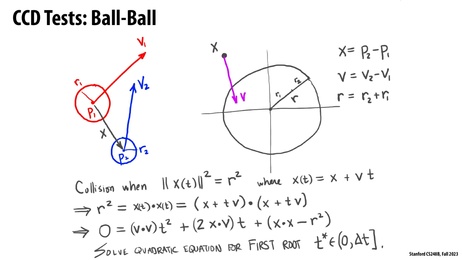 CCD Tests: Ball-Ball
V₁
r₁
P₁
V₂
X
P₂
r₂
X
V
r₁
r₂
r
X = P₂-P₁
V = V₂-V₁
r = r₂+r₁
Collision when ||X(t)||² = r² where X(t) = X + V t
⇒ r² = X(t)•X(t) = (X + tV)•(X + tV)
⇒ 0 = (V•V)t² + (2X•V)t + (X•X-r²)
SOLVE QUADRATIC EQUATION FOR FIRST ROOT t*∈(0,Δt].
Stanford CS248B, Fall 2023